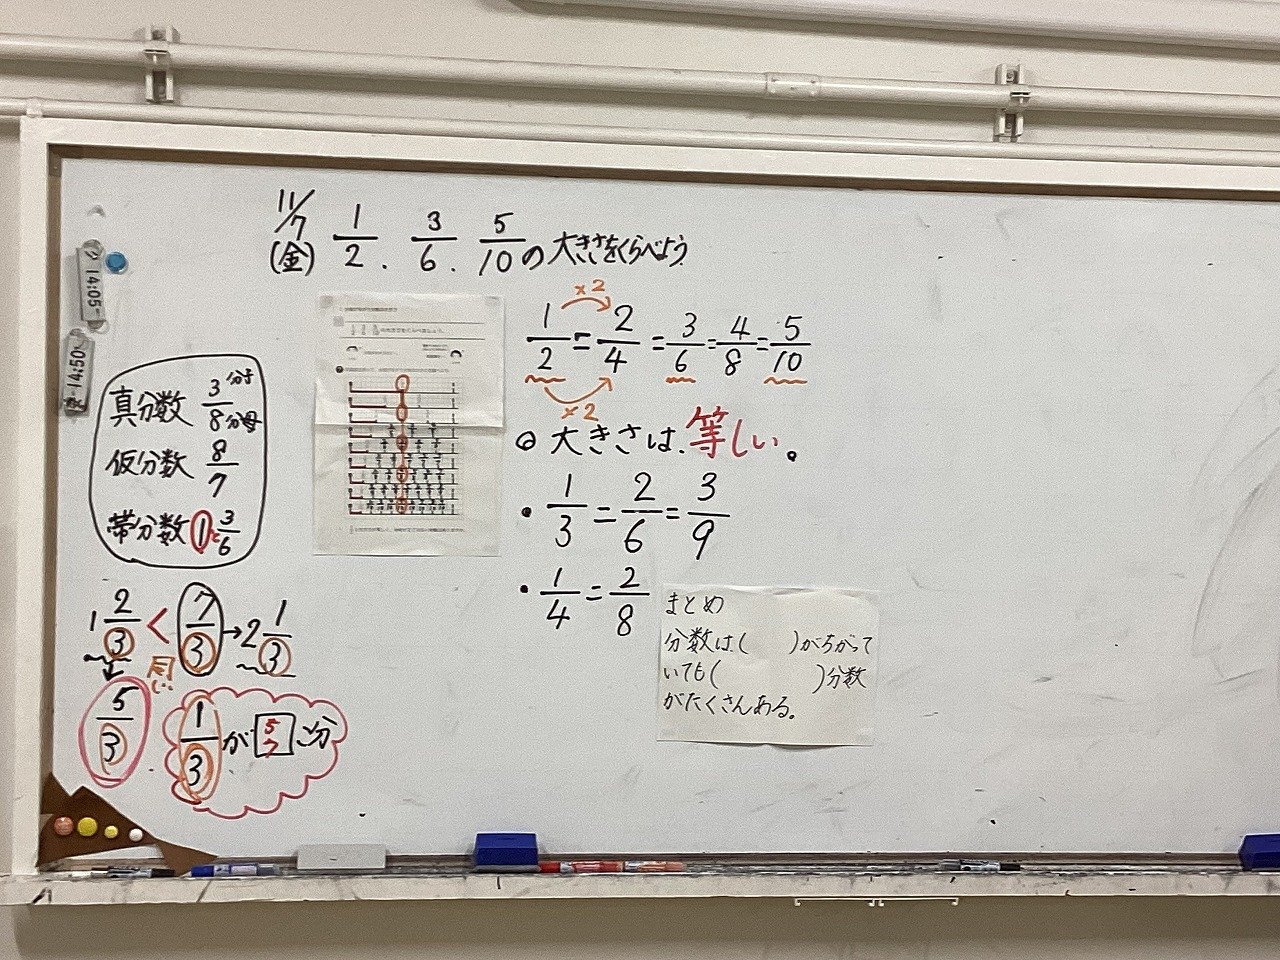 11/7
(金) 1/2、3/6、5/10の大きさをくらべよう
14:05
14:50
真分数 3/8 分子 分母
仮分数 8/7
帯分数 1と3/6
1 2/3 < 7/3 → 2 1/3
同じ
5/3
1/3が 5 7 こ分
×2
1/2 = 2/4 = 3/6 = 4/8 = 5/10
×2
◎大きさは、等しい。
・1/3 = 2/6 = 3/9
・1/4 = 2/8
まとめ
分数は、( )がちがって
いても( )分数
がたくさんある。